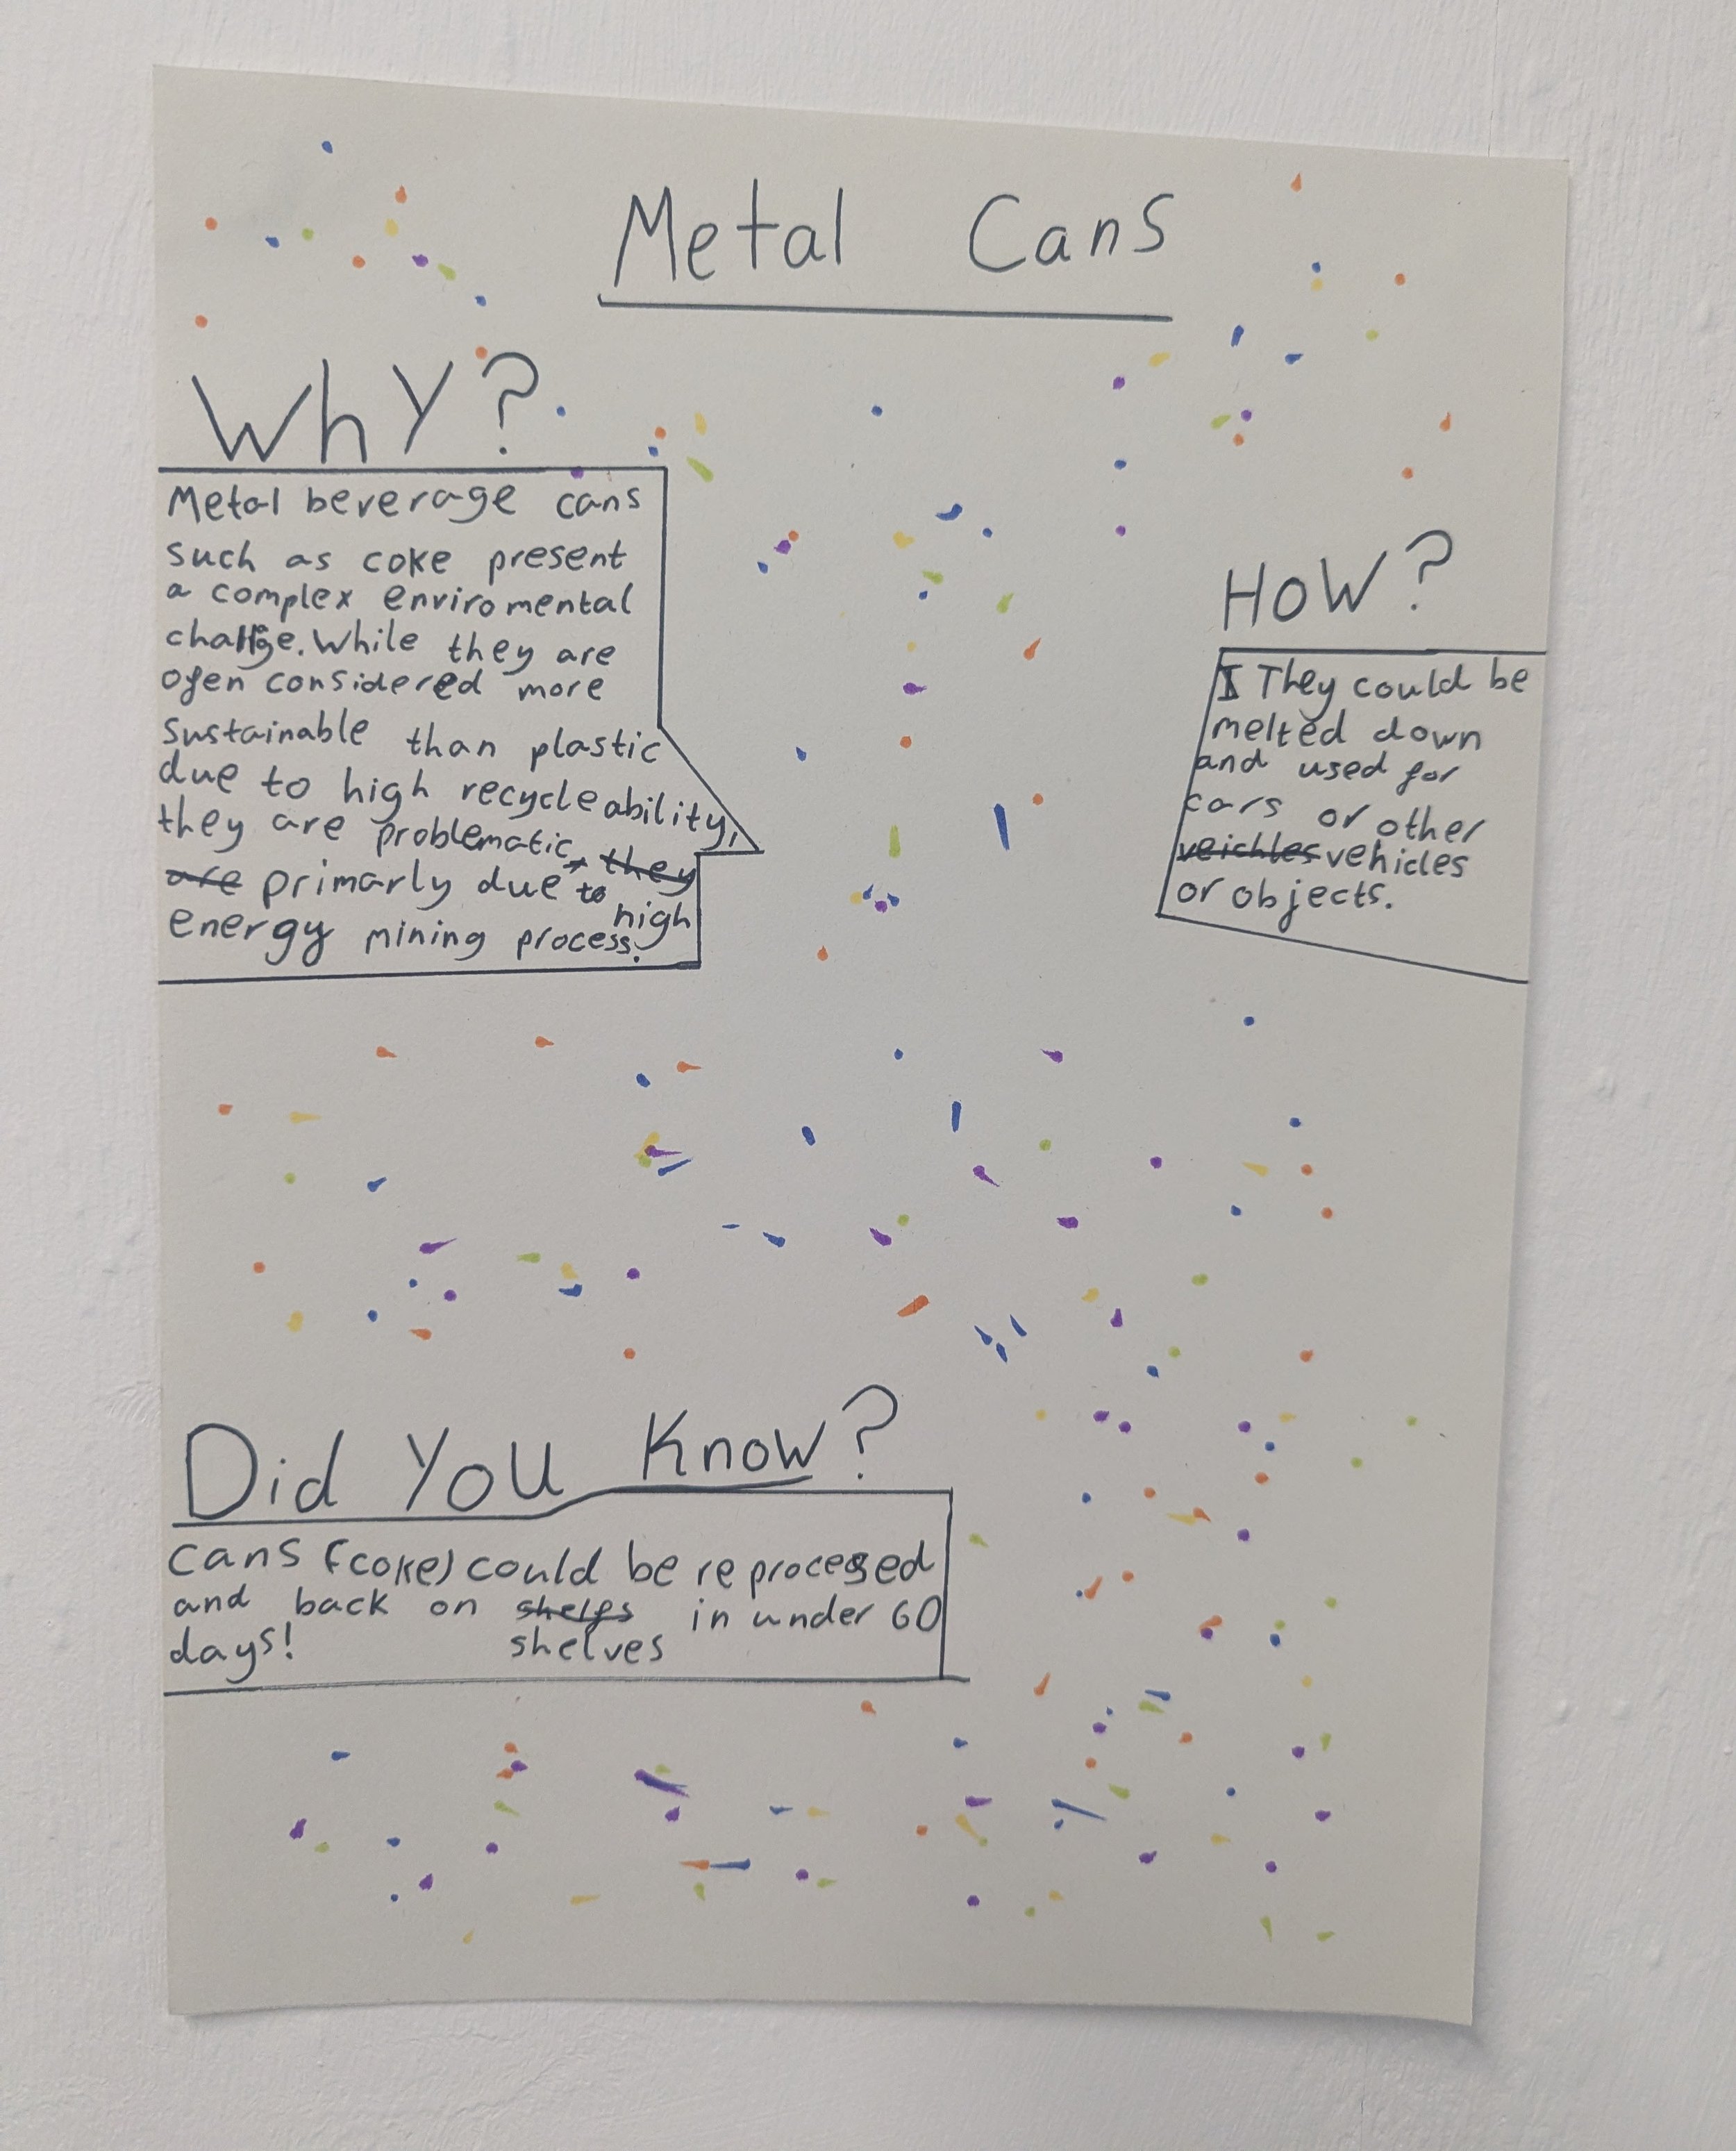 Metal Cans
Why?
Metal beverage cans
such as coke present
a complex enviromental
While they are
ofen considered more
sustainable than plastic
due to high recycleability,
they are problematic, they
are primarly due to
high
energy mining process.
HOW?
I They could be
melted down
and used for
cars or other
veichles vehicles
or objects.
Did You Know?
Cans (coke) could be reprocessed
and back on shelfs in under 60
days! shelves